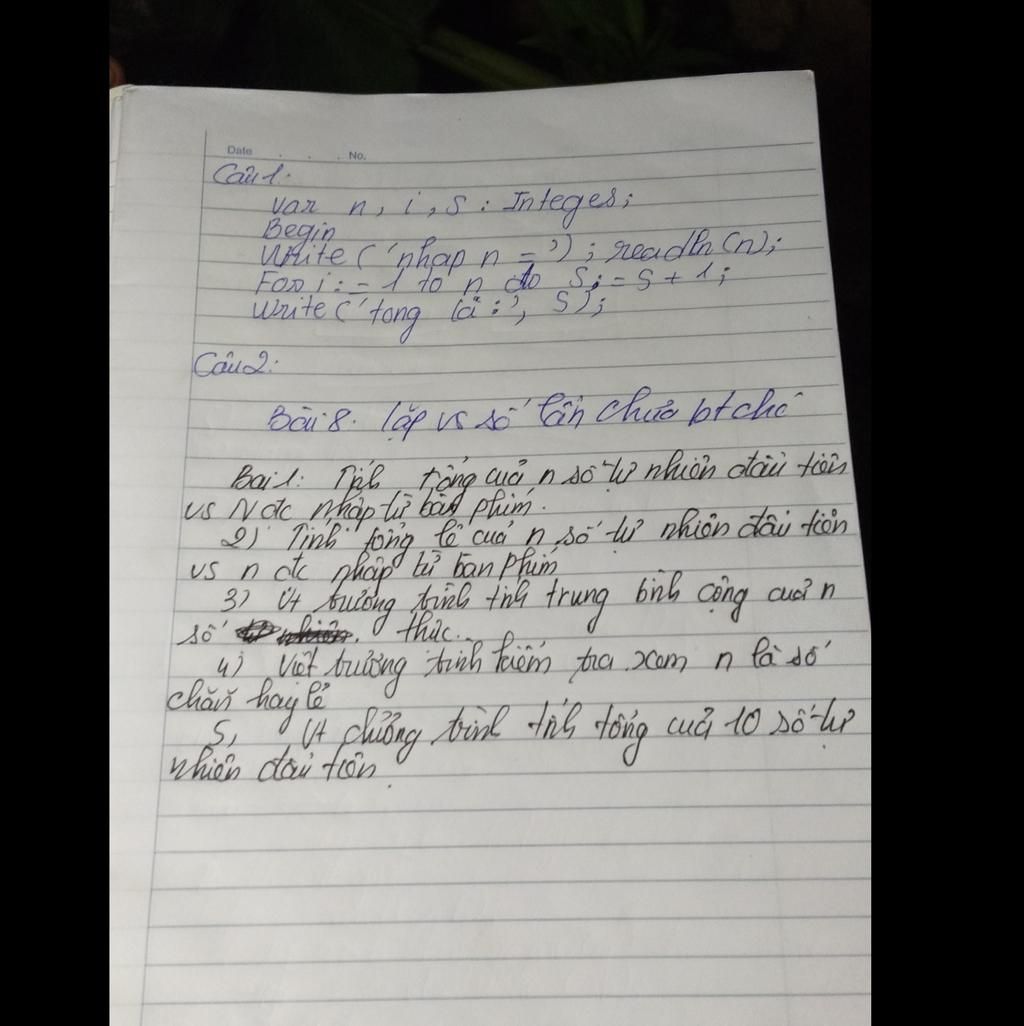 Date . . . No.
Câu 1:
Var n, i, S : Integes;
Begin
Write ('nhap n = '); readln (n);
For i: = 1 to n do S: = S + 1;
Write ('tong là :', S);
Câu 2:
Bài 8. lặp vs số lần chưa bt chc
Bài 1: Tính tổng cuả n số tự nhiên đầu tiên
vs N đc nhập từ bàn phím.
2) Tính tổng lẻ cuả n số tự nhiên đầu tiên
vs n đc nhập từ bàn phím
3) Vt trương trình tính trung bình cộng cuả n
số thức..
4) Viết trương trình kiểm tra xem n là số
chẵn hay lẻ
5, Vt chương trình tính tổng cuả 10 số tự
nhiên đầu tiên.